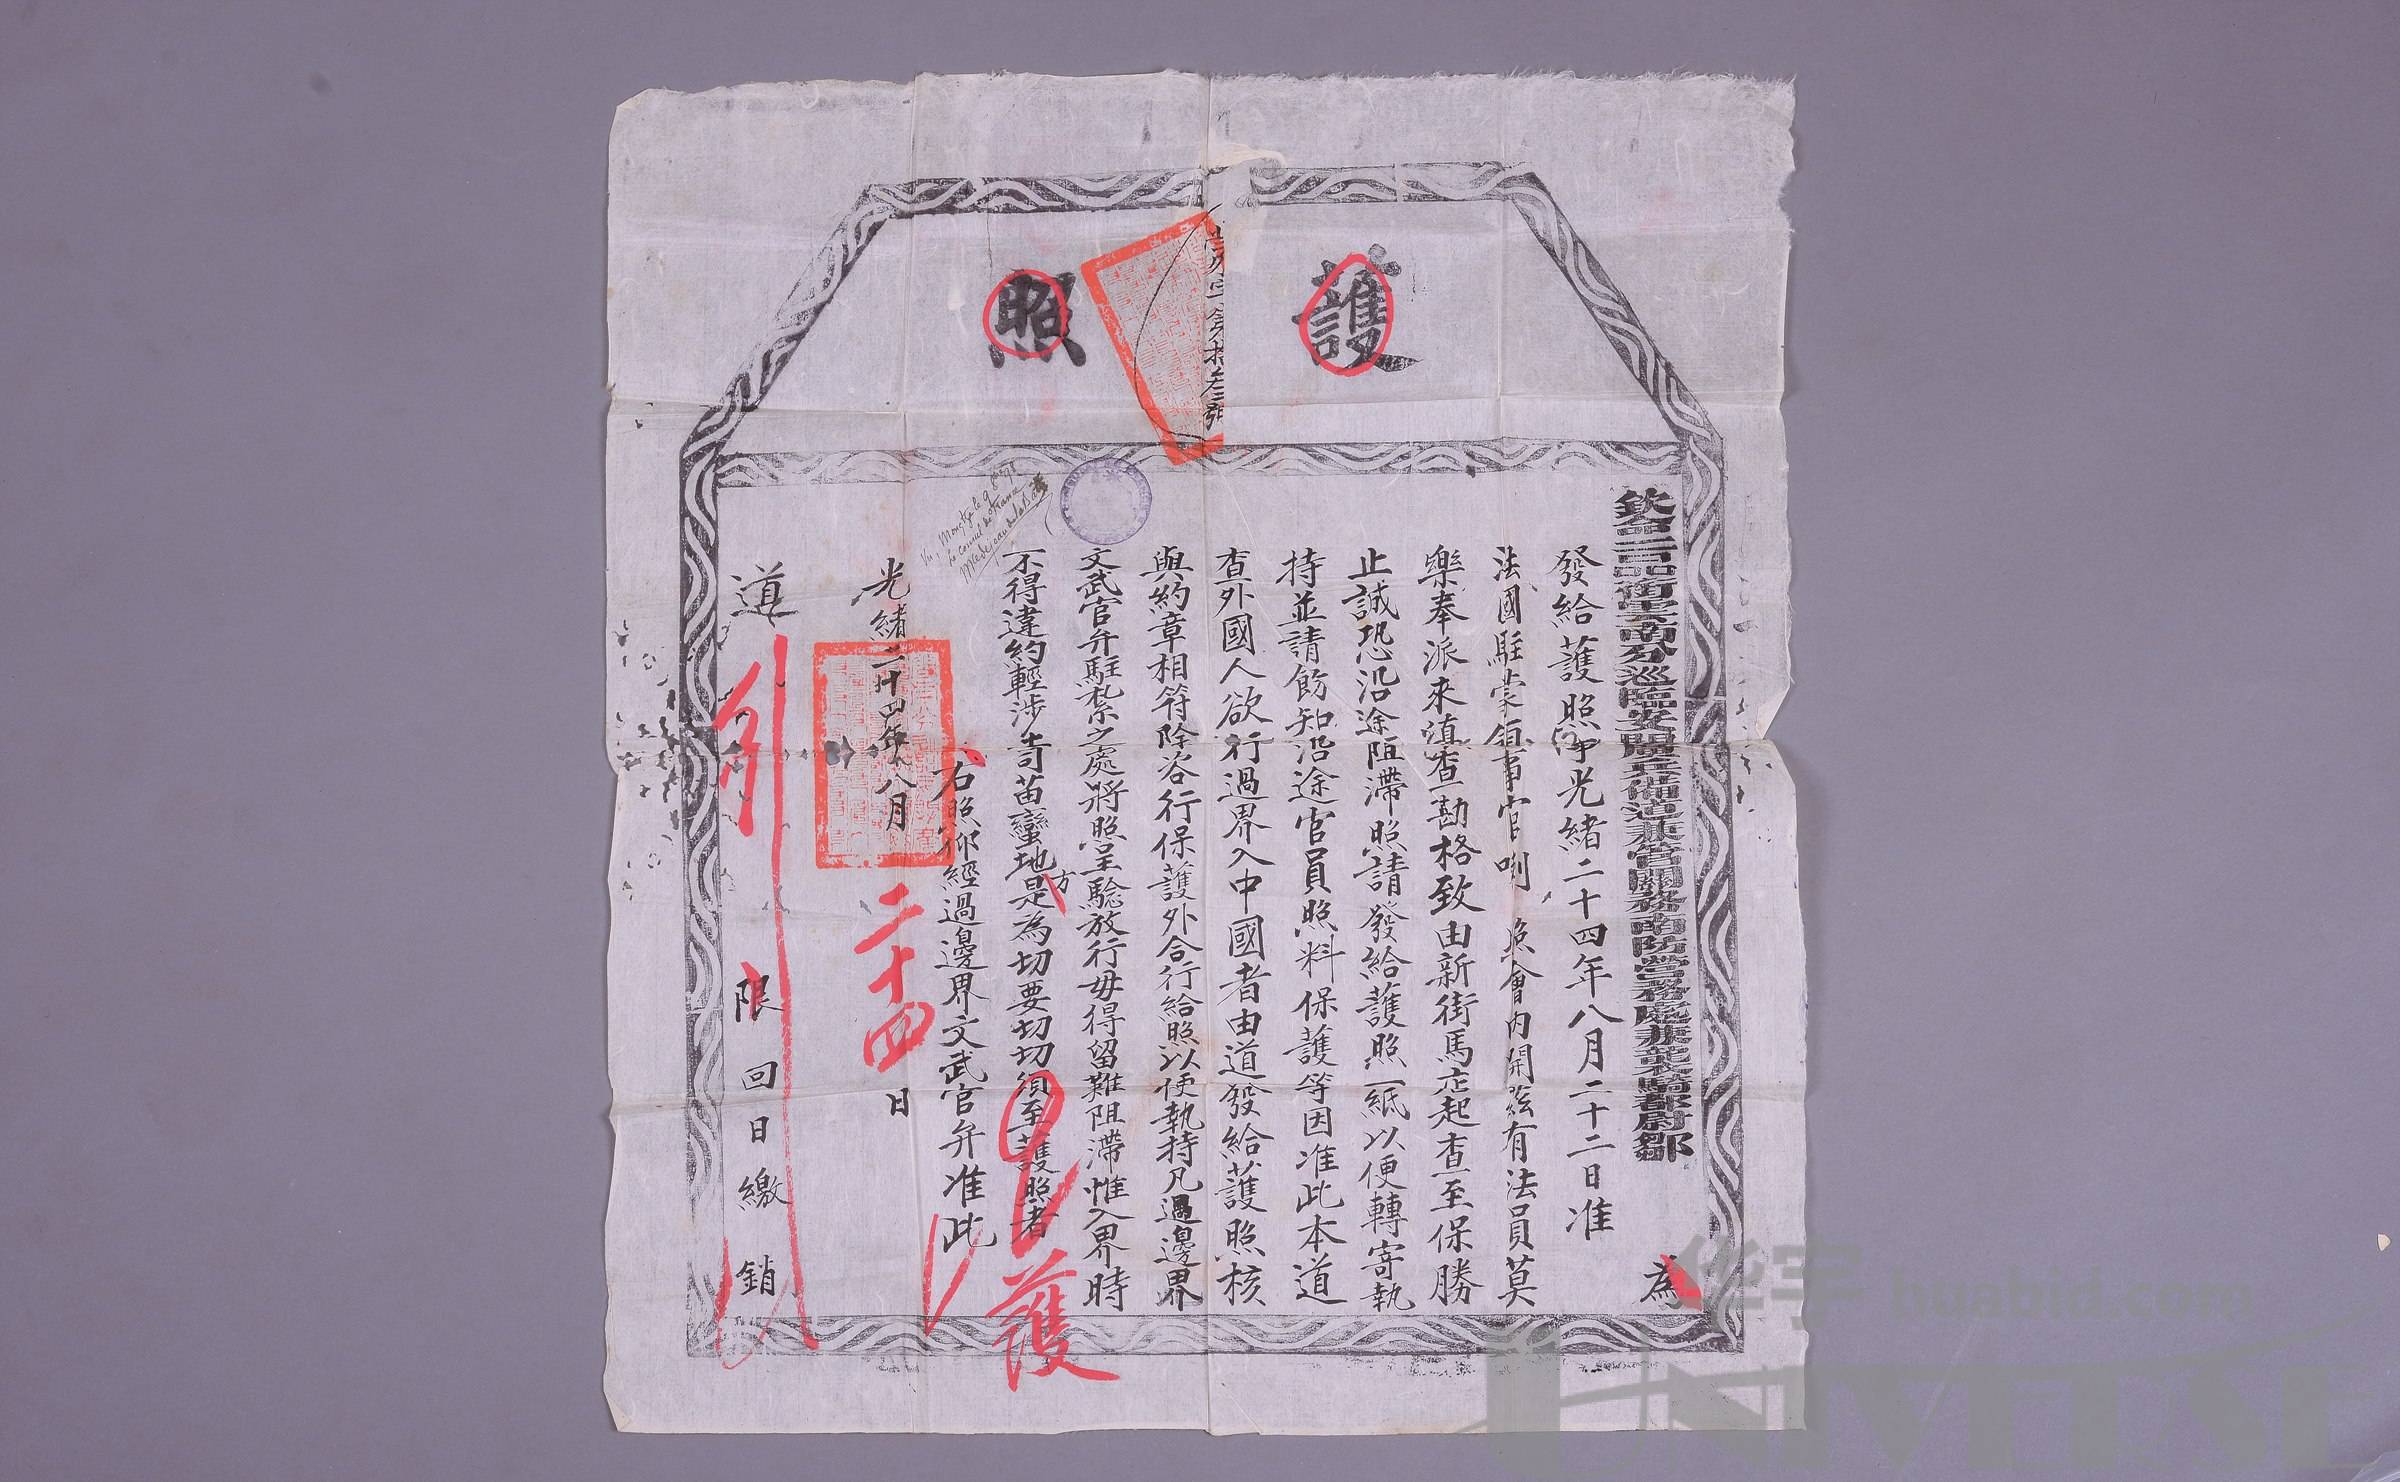 護照
欽命二品銜雲南分巡臨安開廣兵備道兼管關務南防營務處兼襲騎都尉鄒
為
發給護照事光緒二十四年八月二十二日准
法國駐蒙領事官 照會內開茲有法員莫
樂奉派來滇查勘格致由新街馬店起查至保勝
止誠恐沿途阻滯照請發給護照一紙以便轉寄執
持並請飭知沿途官員照料保護等因准此本道
查外國人欲行過界入中國者由道發給護照核
與約章相符除咨行保護外合行給照以便執持凡過邊界
文武官弁駐紮之處將照呈驗放行毋得留難阻滯惟入界時
不得違約輕涉苗蠻地方是為切要切切須至護照者
右照仰經過邊界文武官弁准此
光緒二十四年八月二十四日
道 限回日繳銷
護
Vu, Mongtze le 9 8bre 98
Le consul de France